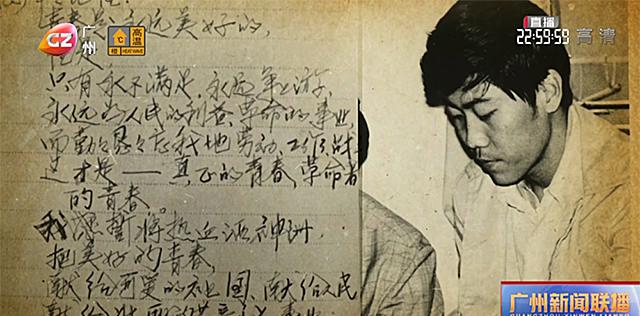 直播
22:59:59
高清
CZ
广州
高温
橙
HEAT WAVE
青春是永远美好的,
但是
只有永不满足,永远争上游,
永远为人民的利益、革命的事业,
而勤勤恳恳忘我地劳动、工作、战
这才是——真正的青春,革命者
的青春。
我愿誓将热血洒神州,
把美好的青春,
献给可爱的祖国、献给人民
广州新闻联播
GUANGZHOU XINWEN LIANBO